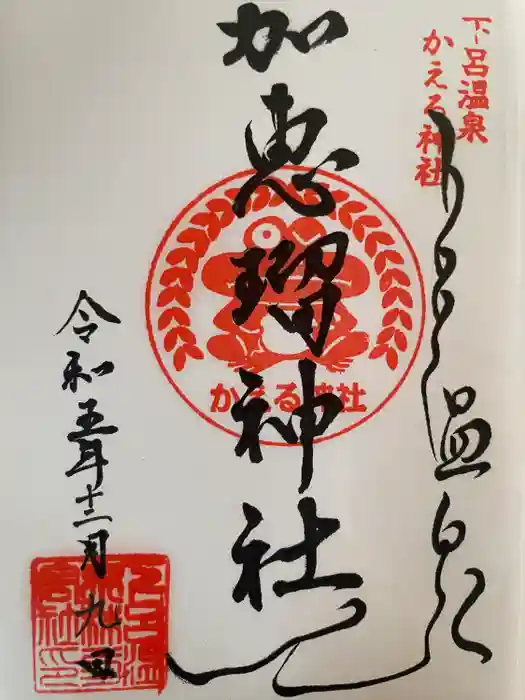 下呂温泉
かえる神社
下呂温泉
加恵瑠神社
かえる神社
令和五年十二月九日